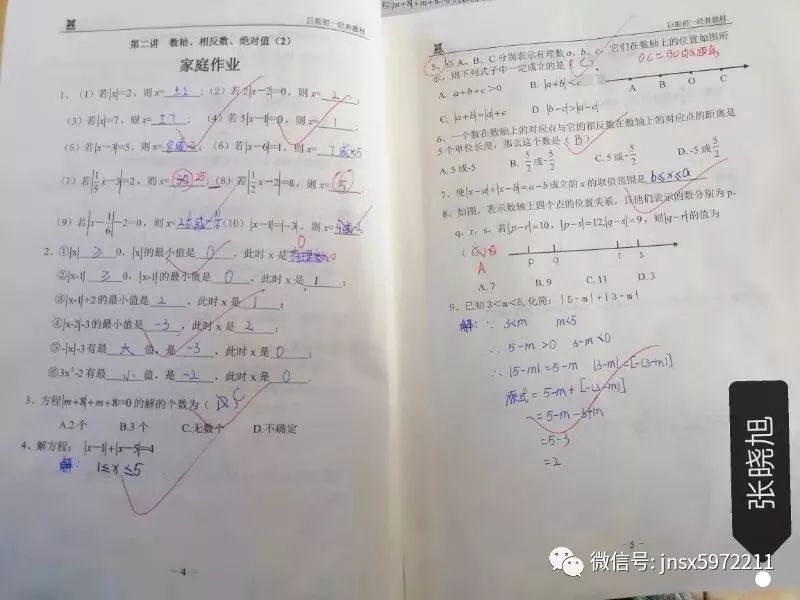 巨能初一经典教材
第二讲 数轴、相反数、绝对值（2）
家庭作业
1、（1）若|x|=2，则x= ±2 ；（2）若2|x－2|=0，则x= 2 ；
（3）若|x|=7，则x= ±7 ；（4）若5|x－1|=0，则x= 1 ；
（5）若|x－3|=5，则x= 8或-2 ；（6）若|x－6|=1，则x= 7或5
（7）若|1/5x－3|=2，则x= 25 ；（8）若|1/2x－2|=8，则x=
（9）若|x－1/6|－2=0，则x= （10）|x－1|=|－3|，则x= 4或-2
2、①|x| ≥ 0，|x|的最小值是 0 ，此时x是 0
②|x-1| ≥ 0，|x-1|的最小值是 0 ，此时x是 1 ；
③|x-1|+2的最小值是 2 ，此时x是 1 ；
④|x-2|-3的最小值是 -3 ，此时x是 2 ；
⑤-|x|-3有最 大 值，是 -3 ，此时x是 0 ；
⑥3x²-2有最 小 值，是 -2 ，此时x是 0 ．
3、方程|m+8|+m+8=0的解的个数为（ C
A.2个 B.3个 C.无数个 D.不确定
4、解方程：|x－1|+|x－5|=4
解： 1≤x≤5
- 4 -
程|m+8|+m+8=0的
巨能初一经典教材
5、点A、B、C分别表示有理数a、b、c，它们在数轴上的位置如图所
示，则下列式子中一定成立的是（ C ）
OC=BO的距离
A. a+b+c>0 B. |a+b|<c
A B O C
C. |a+b|=|a|+c D. |b－c|>|a－c|
6、一个数在数轴上的对应点与它的相反数在数轴上的对应点的距离是
5个单位长度，那么这个数是（ B ）
A. 5或-5 B. 5/2或-5/2 C. 5或-5/2 D. -5或5/2
7、使|x－a|+|x－b|=a－b成立的x的取值范围是 b≤x≤a
8、如图，表示数轴上四个点的位置关系，且他们表示的数分别为p、
q、r、s，若|p－r|=10，|p－s|=12,|q－s|=9，则|q－r|的值为
A
p q r s
A. 7 B. 9 C. 11 D. 3
9、已知3＜m＜5,化简：|5－m|+|3－m|
解：∵ 3<m m<5
∴ 5-m >0 3-m <0
∴ |5-m|=5-m |3-m|=[-(3-m)]
原式= 5-m+[-(3-m)]
=5-m-3+m
=5-3
=2
- 5 -
张晓旭
微信号: jnsx5972211